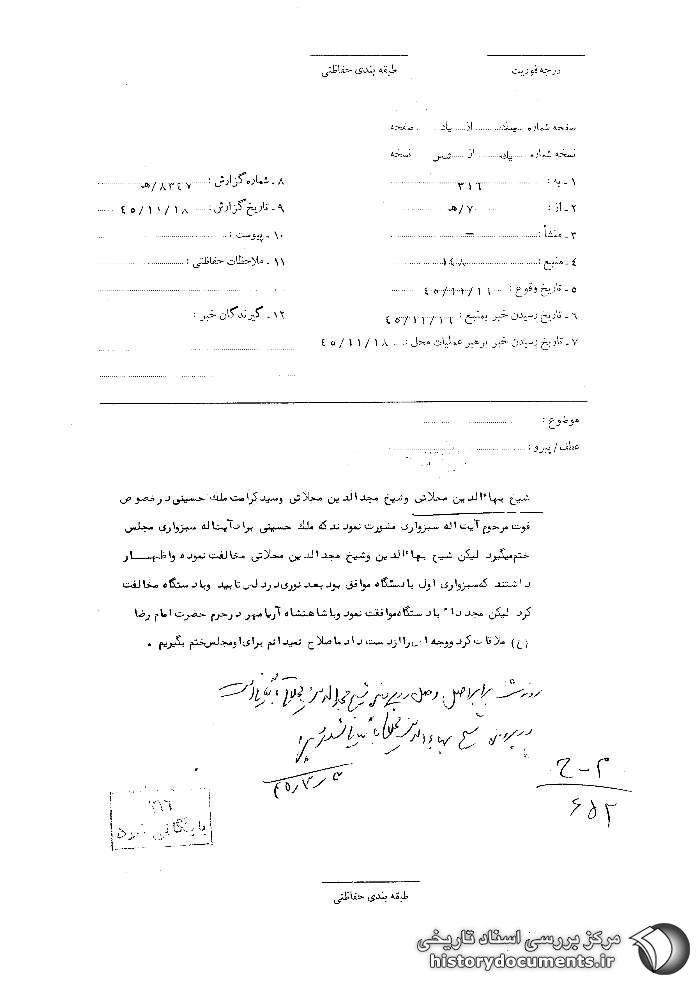 درجه فوریت
طبقه بندی حفاظتی
صفحه شماره ... یک ... از ... یک ... صفحه
نسخه شماره ... یک ... از ... شش ... نسخه
۱ـ به : ۳۱۶
۲ـ از : ۷/هـ
۳ـ منشأ : ـ
۴ـ منبع : ۱۴۸
۵ـ تاریخ وقوع : ٤٥/۱۱/۱٦
۶ـ تاریخ رسیدن خبر بمنبع : ٤٥/۱۱/۱٦
۷ـ تاریخ رسیدن خبر برهبر عملیات محل : ٤٥/۱۱/۱۸
۸ـ شماره گزارش : ۸۳٤۷/هـ
۹ـ تاریخ گزارش : ٤٥/۱۱/۱۸
۱۰ـ پیوست :
۱۱ـ ملاحظات حفاظتی :
۱۲ـ گیرندگان خبر :
موضوع :
عطف/پیرو :
شیخ بهاءالدین محلاتی وشیخ مجدالدین محلاتی وسیدکرامت ملك حسینی درخصوص
فوت مرحوم آیت اله سبزواری مشورت نمودندکه ملك حسینی برادآیت‌اله سبزواری مجلس
ختم میگیرد لیکن شیخ بهاءالدین وشیخ مجدالدین محلاتی مخالفت نموده واظهـــار
داشتند که‌سبزواری اول بادستگاه موافق بود بعد نوری دردلش تابید وبادستگاه مخالفت
کرد لیکن مجدداً بادستگاه‌موافقت نمودوباشاهنشاه آریامهر درحرم حضرت امام رضا
(ع) ملاقات کردووجهه اش‌راازدست دادماصلاح نمیدانم برای‌اومجلس‌ختم بگیریم .
رونوشت برابر اصل و اصل در پرونده شیخ مجدالدین محلاتی بایگانی است
در پرونده شیخ بهاءالدین محلاتی بایگانی شود
م - ح
۶۵۲
۳۱۶
بایگانی شود
طبقه بندی حفاظتی
مرکز بررسی اسناد تاریخی
historydocuments.ir